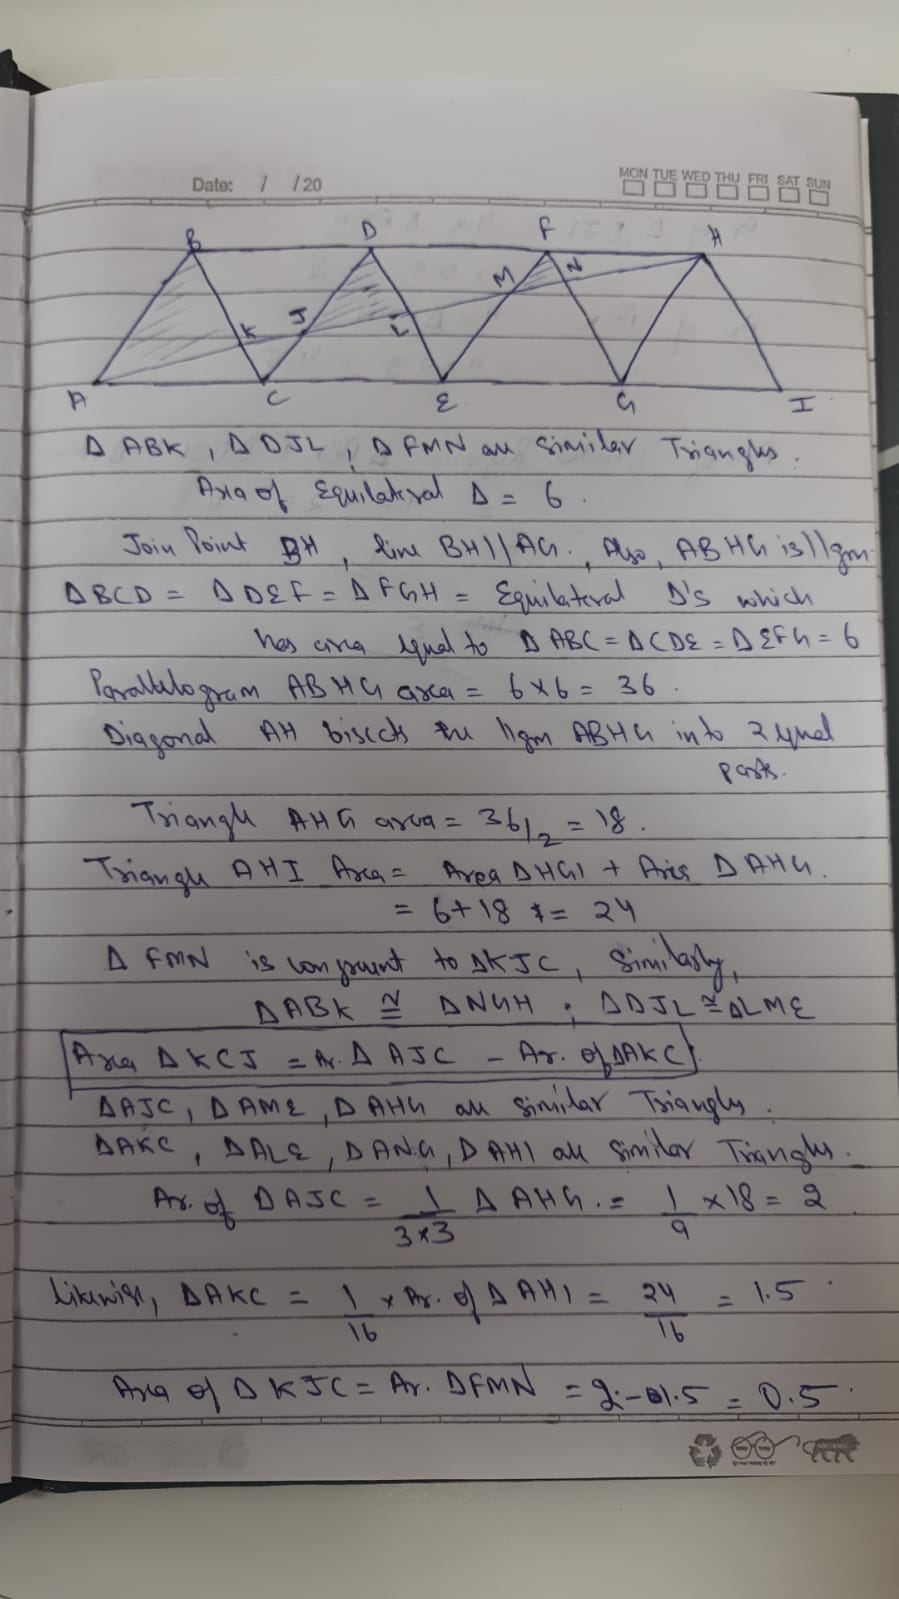 Date: / /20
MON TUE WED THU FRI SAT SUN
B D F H
K J L M N
A C E G I
Δ ABK, Δ DJL, Δ FMN are similar Triangles.
Area of Equilateral Δ = 6.
Join Point BH, line BH||AG. Also, ABHG is ||gm.
ΔBCD = ΔDEF = ΔFGH = Equilateral Δ's which
has area equal to Δ ABC = ΔCDE = ΔEFG = 6
Parallelogram ABHG area = 6x6 = 36.
Diagonal AH bisects the ||gm ABHG into 2 equal
parts.
Triangle AHG area = 36/2 = 18.
Triangle AHI Area = Area ΔHGI + Area ΔAHG.
= 6+18 = 24
Δ FMN is congruent to ΔKJC, Similarly,
ΔABK ≅ ΔNGH; ΔDJL ≅ ΔLME
Area ΔKCJ = Ar. Δ AJC - Ar. of ΔAKC.
ΔAJC, ΔAME, ΔAHG are similar Triangles.
ΔAKC, ΔALE, ΔANG, ΔAHI are similar Triangles.
Ar. of ΔAJC = 1/3x3 Δ AHG. = 1/9 x 18 = 2
Likewise, ΔAKC = 1/16 x Ar. of ΔAHI = 24/16 = 1.5
Area of ΔKJC = Ar. ΔFMN = 2 - 1.5 = 0.5